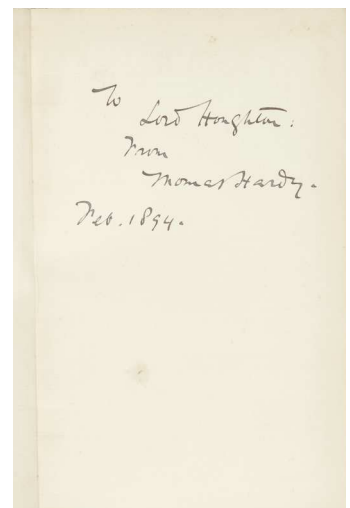 To
Lord Houghton:
From
Thomas Hardy.
Feb. 1894.